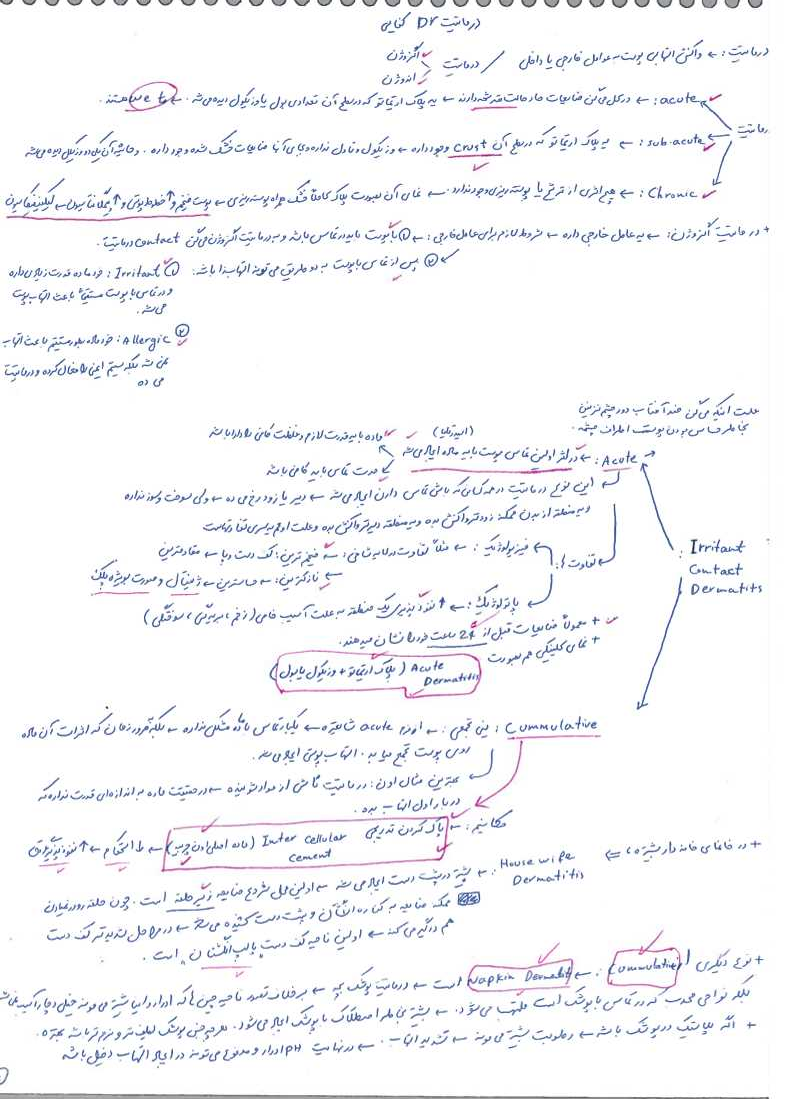 درماتیت Dr کنایی
درماتیت: ← واکنش التهابی پوست به عوامل خارجی یا داخلی / درماتیت
اگزوژن
اندوژن
درماتیت
acute: ← در کل می‌گن ضایعات حاد حالت دارند ← یه پلاک اریتماتو که در سطح آن تعدادی بول یا وزیکول دیده می‌شه. ← wet هستند.
sub-acute: ← یه پلاک اریتماتو که در سطح آن Crust وجود داره ← وزیکول و تاول نداره و بجای آنها ضایعات خشک شده وجود داره. و حاشیه آن وزیکل دیده می‌شه
Chronic: ← هیچ اثری از ترشح یا وجود نداره. نمای آن بصورت پلاک کاملاً خشک همراه پوسته‌ریزی ← پوست ضخیم و ↑ خطوط پوستی و ↑ پیگمانتاسیون ← لیکنیفیکاسیون
+ درماتیت اگزوژن: ← یه عامل خارجی داره ← شروط لازم برای عامل خارجی: ← ① با پوست باید در تماس باشه و به درماتیت اگزوژن می‌گن contact درماتیت.
② پس از تماس با پوست به دو طریق می‌تونه التهاب‌زا باشه:
① Irritant: خود ماده قدرت زیادی داره
و در تماس با پوست مستقیماً باعث التهاب پوست
می‌شه.
② Allergic: خود ماده بطور مستقیم باعث التهاب
نمی‌شه بلکه سیستم ایمنی را فعال کرده و درماتیت
می‌ده
علت اینکه می‌گن ضد آفتاب دور چشم نزنین
بخاطر حساس بودن پوست اطراف چشمه.
ماده باید قدرت لازم و غلظت کافی را دارا باشه
Acute: ← در اثر اولین تماس پوست با یه ماده ایجاد می‌شه
مدت تماس باید کافی باشه
این نوع درماتیت در همه کسانی که باش تماس دارن ایجاد می‌شه ← دیر یا زود رخ می‌ده ← ولی سوخت و سوز نداره
و یه منطقه از بدن ممکنه زودتر واکنش بده و یه منطقه دیرتر واکنش بده و علت اونم یه سری تفاوتهاست
تفاوتها:
فیزیولوژیک: ← مثلاً تفاوت در لایه شاخی: ← ضخیم‌ترین: کف دست و پا ← مقاوم‌ترین
نازکترین: ← حساسترین ← ژنیتال و صورت بویژه پلک
پاتولوژیک: ← ↑ نفوذپذیری یک منطقه به علت آسیب خاص (زخم، بریدگی، سوختگی)
+ معمولاً ضایعات قبل از 24 ساعت خود را نشان می‌دهند.
+ نمای کلینیکی هم بصورت
Acute (پلاک اریتماتو + وزیکول یا بول)
Dermatitis
Irritant
Contact
Dermatitis
Cummulative: یعنی تجمعی: ← از نوع acute شایعتره ← یکبار تماس با ماده مشکلی نداره ← بلکه بمرور زمان که اثرات آن ماده
روی پوست تجمع میابد. التهاب پوستی ایجاد می‌شه.
بهترین مثال اون: درماتیت ناشی از مواد شوینده ← در حقیقت ماده به اندازه‌ای قدرت نداره که
در بار اول التهاب بده.
مکانیسم: ← پاک کردن تدریجی Inter Cellular (ماده اصلی اون چربیه) ← ↓ استحکام ← ↑ نفوذپذیری
cement
+ در خانمای خانه‌دار بیشتره ← House wife
Dermatitis: ← بیشتر در پشت دست ایجاد می‌شه ← اولین محل شروع ضایعه زیر حلقه است. چون حلقه رو در نمیارن
ممکنه ضایعه به کناره انگشتان و پشت دست کشیده می‌شه ← در مراحل شدیدتر کف دست
هم درگیر می‌کنه ← اولین ناحیه کف دست پالپ انگشتان است.
+ نوع دیگری از Cummulative: ← Napkin Dermatit است ← درماتیت پوشک بچه ← بر خلاف تصور ناحیه چین‌ها که ادرار در اونجا بیشتر می‌مونه خیلی دچار آسیب نمی‌شه
بلکه نواحی محدب که در تماس با پوشک است ملتهب می‌شود. ← بیشتر بخاطر اصطکاک با پوشک ایجاد می‌شود. هر چی جنس پوشک لطیف‌تر و نرم‌تر باشه بهتره.
+ اگه پلاستیک در پوشک باشه ← رطوبت بیشتر می‌مونه ← تشدید التهاب. ← در نهایت PH ادرار و مدفوع می‌تونه در ایجاد التهاب دخیل باشه